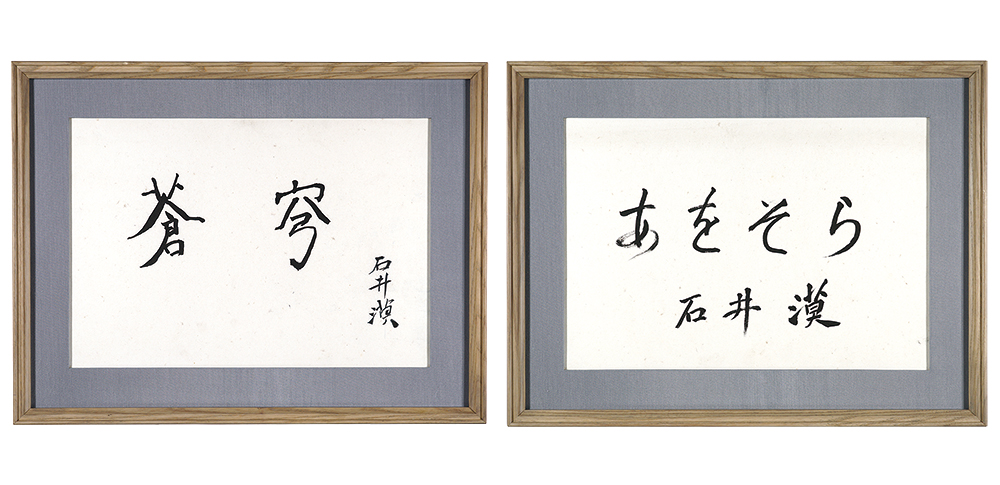 蒼穹
石井漠
あをそら
石井漠